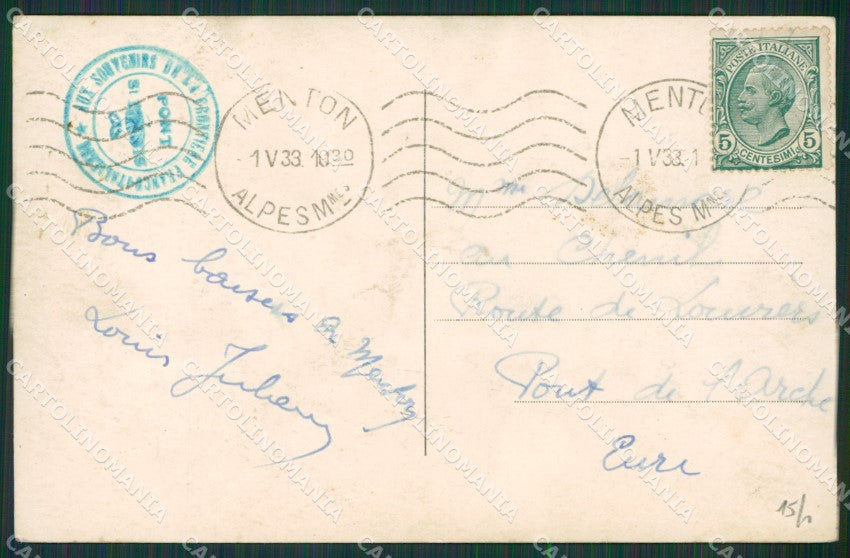 AUX SOUVENIRS DE LA FRONTIÈRE FRANCO-ITALIENNE
PONT
ST LOUIS
MENTON
1 V 33 10 30
ALPES Mmes
MENTO
1 V 33 1
ALPES Mmes
POSTE ITALIANE
5 5
CENTESIMI
Bons baisers de Menton
Louis
Mme
au Chenil
Route de Louviers
Pont de l'Arche
Eure
15/
CARTOLINOMANIA